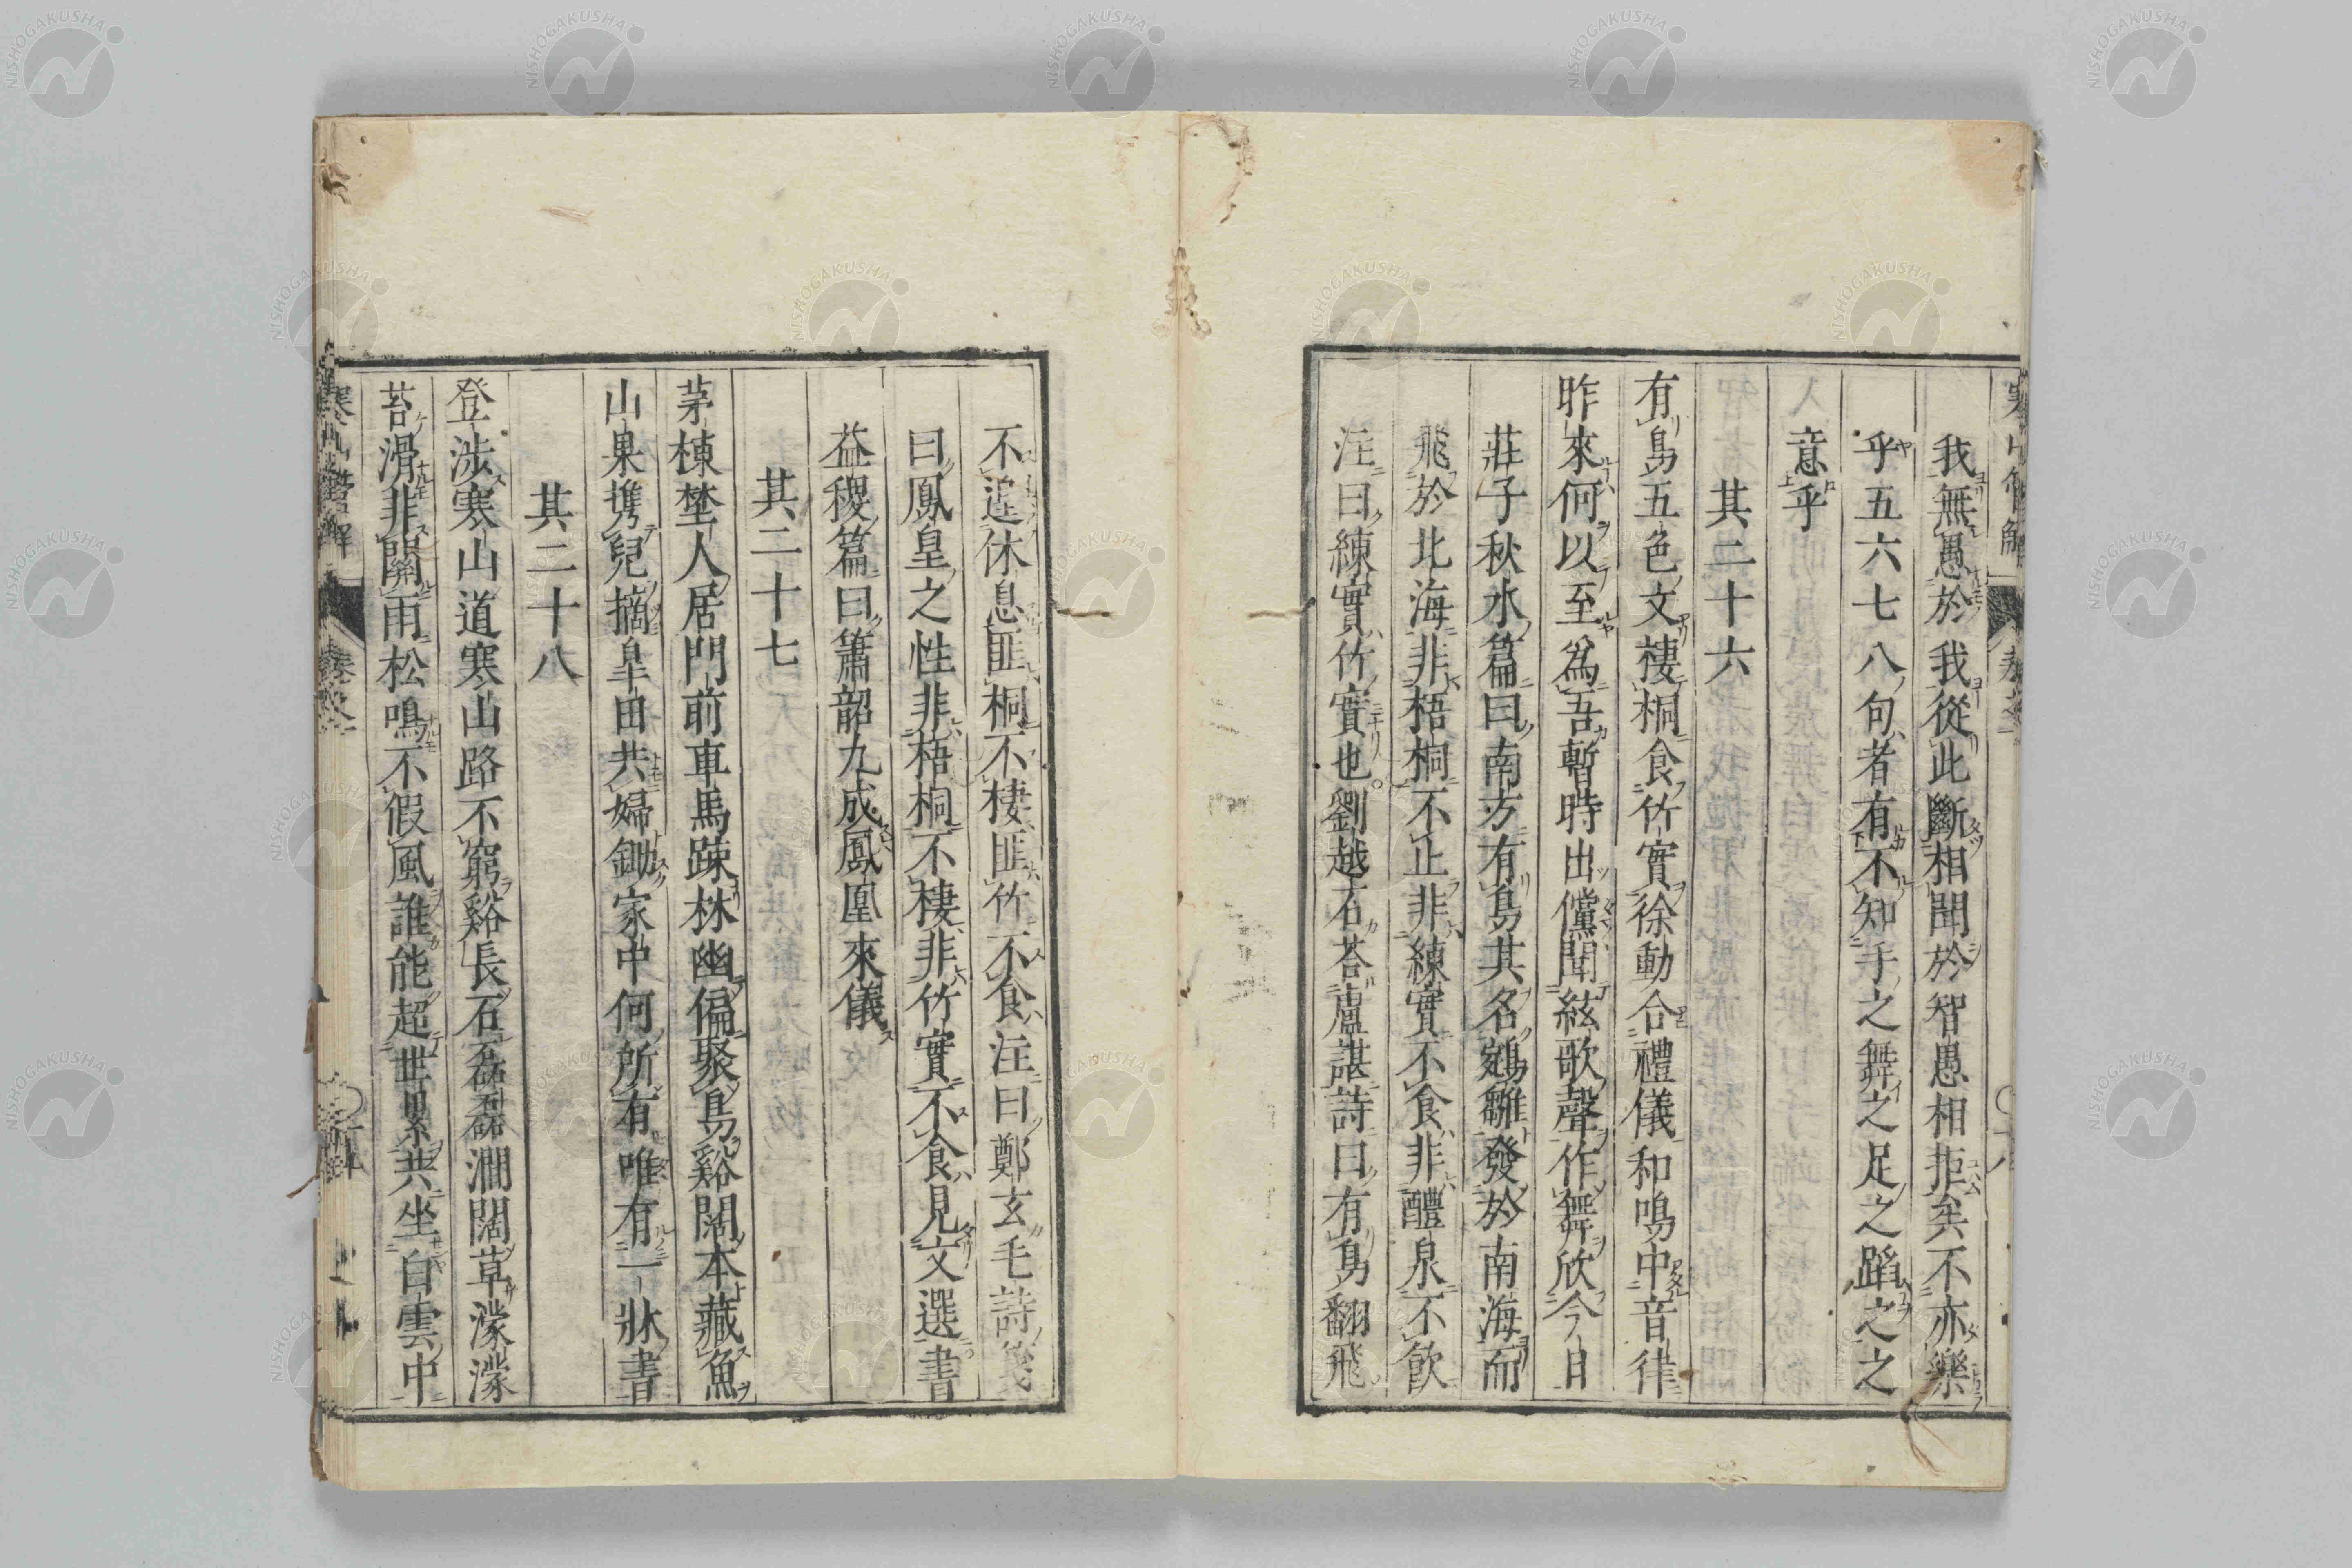 我無愚於我從此斷相聞於智愚相拒矣不亦樂
乎五六七八句者有不知手之舞之足之蹈之之
意乎
其二十六
有鳥五色文棲桐食竹實徐動合禮儀和鳴中音律
昨來何以至爲吾暫時出儻聞絃歌聲作舞欣今日
莊子秋水篇曰南方有鳥其名鵷雛發於南海而
飛於北海非梧桐不止非練實不食非醴泉不飲
注曰練實竹實也。劉越石荅盧諶詩曰有鳥翻飛
不遑休息匪桐不棲匪竹不食注曰鄭玄毛詩箋
曰鳳皇之性非梧桐不棲非竹實不食見文選書
益稷篇曰簫韶九成鳳凰來儀
其二十七
茅棟埜人居門前車馬疎林幽偏聚鳥谿闊本藏魚
山果携兒摘皐田共婦鋤家中何所有唯有一牀書
其二十八
登涉寒山道寒山路不窮谿長石磊磊澗闊草濛濛
苔滑非關雨松鳴不假風誰能超世累共坐白雲中
NISHOGAKUSHA